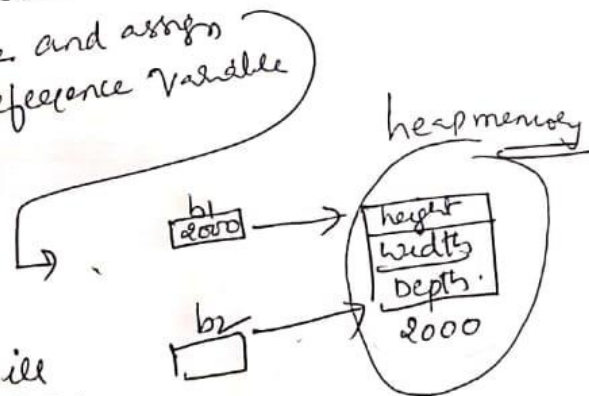 and assign
reference variable
heap memory
b1
2000
height
width
Depth.
2000
b2
ill